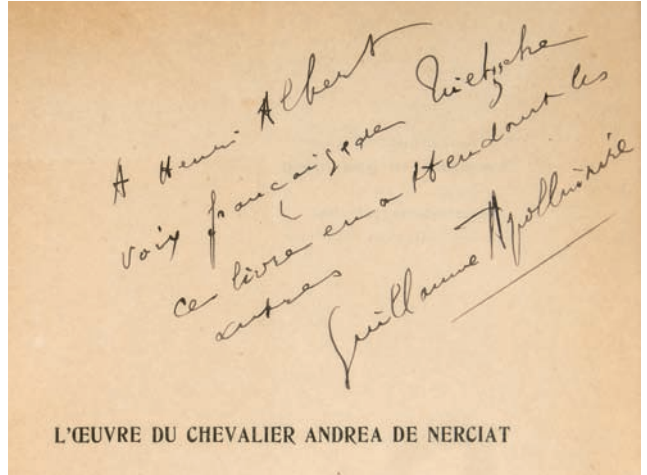 A Henri Albert
voix française de Nietzsche
ce livre en attendant les
autres
Guillaume Apollinaire
L'ŒUVRE DU CHEVALIER ANDREA DE NERCIAT